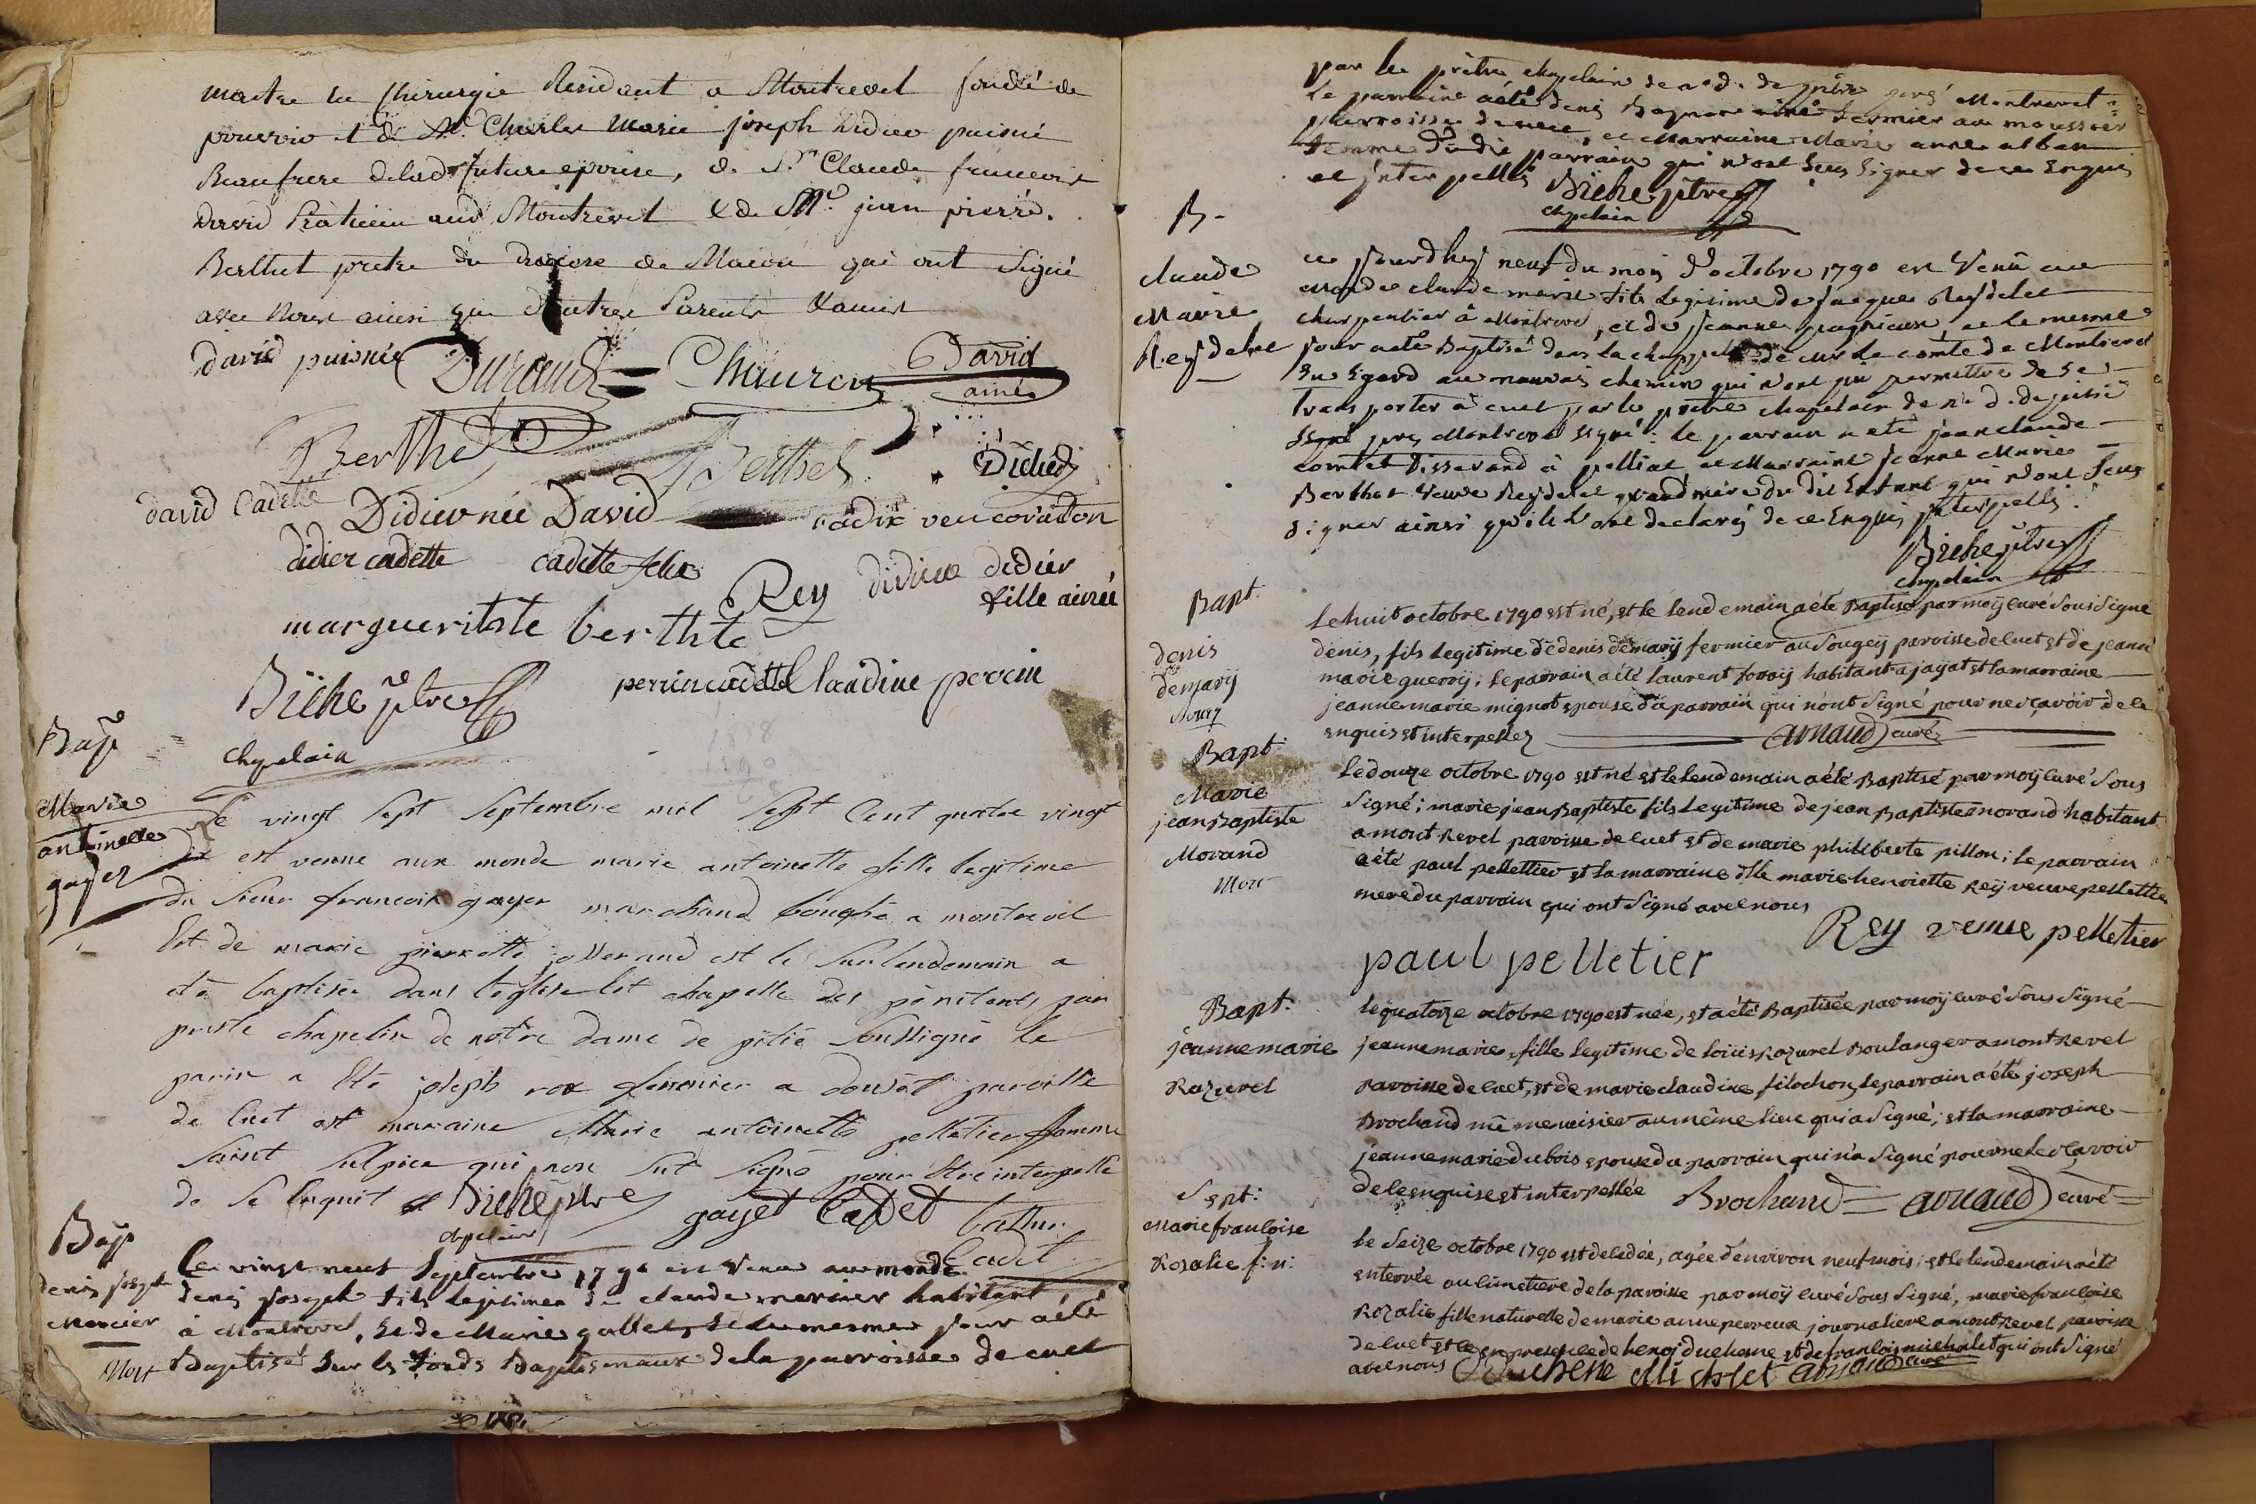 maitre en Chirurgie Resident a Montrevel fondé de
pouvoir et de Mr. Charles Marie joseph Didier puisné
Beaufrere de lad. future epouse, de Sr. Claude francois
david Praticien aud. Montrevel & de Mre. jean pierre
Berthet pretre du diocese de Macon qui ont Signé
avec Nous ainsi que d'autres Parents & amis
david puisnée Durand Chauren David
ainé
Berthet Berthet Didier
david Cadette Didier née David cadix veu coradon
didier cadette cadette felix Rey didier didier
fille ainée
margueritte berthte
Biche ptre perrin cadette Claudine perrin
chapelain
Bap
Marie
antoinette
gayet
Le vingt sept septembre mil sept Cent quatre vingt
dix est venue aux monde marie antoinette fille legitime
du sieur francois gayer marchand bouché a montrevel
Et de marie pierrette josserand est le surlendemain a
été baptisée dans l'église est chapelle des pénitents par
preste chapelin de notre dame de pitié soussigné le
parin a Eté joseph rox fermier a paroisse
de Cuet est maraine Marie antoinette pelletier famme
saint sulpice qui non sut signé pour Etre interpellé
de se Enquit Biche ptre gayet Cadet
chapelain Cadet
Bap
denis joseph
Mercier
Mort
Le vingt neuf Septembre 1790 est Venu au monde
denis joseph fils legitime de claude mercier habitant
à Montrevel, Et de Marie gallet, Et le mesme jour a été
Baptisé Sur les fonds Baptismaux de la parroisse de cuet
par le prêtre chapelain de n. d. de pitié près Montrevel
le parrain a été denis fermier au moussier
parroisse de cuet et Marraine Marie anne alban
femme du dit parrain qui n'ont Seus Signer de ce Enquis
et jnterpellés Biche ptre
chapelain
B.
claude
Marie
Reydelet
ce jourdhuy neuf du mois d'octobre 1790 est Venu au
Monde claude marie fils legitime de jacque Reydelet
charpentier à Montrevel, et de jeanne pagnieux, et le mesme
jour a été Baptisé dans la chappelle de mr Le comte de Montrevel
Eu Egard au mauvais chemin qui n'ont pu permettre de se
transporter à cuet par le prêtre chapelain de n. d. de pitié
près Montrevel signé : le parrain a été jean claude
comtet tisserand à pelliat et Marraine jeanne Marie
Berthet Veuve Reydelet grand mère du dit Enfant qui n'ont seus
signer ainsi qu'ils l'ont declarés de ce Enquis jnterpellés.
Biche ptre
chapelain
Bapt.
denis
demarÿ
Mort
Le huit octobre 1790 est né, et le lendemain a été Baptisé par moÿ curé Sous Signé
denis, fils legitime de denis demarÿ fermier au Sougeÿ paroisse de cuet et de jeanne
marie guerrÿ; le parrain a été laurent forraÿ habitant a jaÿat et la marraine
jeanne marie mignot epouse du parrain qui n'ont Signé pour ne sçavoir de le
enquis et interpellez arnaud curé
Bapt.
Marie
jean Baptiste
Morand
Mort
le douze octobre 1790 est né et le lendemain a été Baptisé par moÿ curé Sous
Signé; marie jean Baptiste fils Legitime de jean Baptiste morand habitant
a mont Revel paroisse de cuet et de marie philiberte pillon; le parrain
a été paul pellettier et la marraine dlle marie henriette Reÿ veuve pellettier
mere du parrain qui ont Signé avec nous
paul pelletier Rey veuve pelletier
Bapt.
jeanne marie
Razurel
le quatorze octobre 1790 est née, et a été Baptisée par moÿ curé Sous Signé
jeanne marie fille legitime de loüis Razurel Boulanger a mont Revel
paroisse de cuet, et de marie claudine filochon, le parrain a été joseph
Brochand me menuisier au même lieu qui a Signé; et la marraine
jeanne marie dubois epouse du parrain qui n'a Signé pour ne le sçavoir
de le enquise et interpellée Brochand arnaud curé
Sept:
Marie francoise
Rosalie f: n:
le Seize octobre 1790 est décédée, agée d'environ neuf mois; et le lendemain a été
enterrée au cimetiere de la paroisse par moÿ curé Sous Signé, marie francoise
Rozalie fille naturelle de marie anne perreux journaliere a mont Revel paroisse
de cuet et ce en presence de benoj duchesne et de francois michalet qui ont Signé
avec nous Duchene Michalet arnaud curé